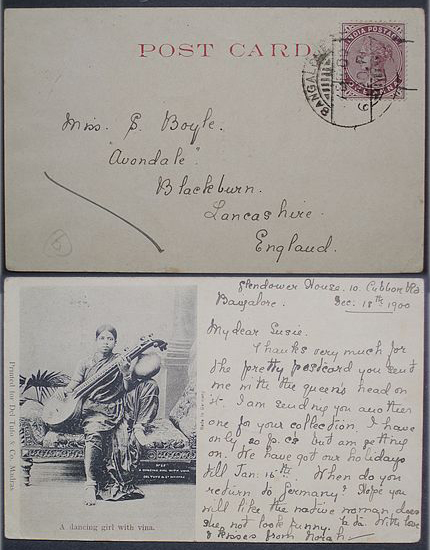 POST CARD.
INDIA POSTAGE
BANGALORE
Miss. S. Boyle.
"Avondale".
Blackburn.
Lancashire.
England.
5
Glendower House. 10. Cubbon Rd
Bangalore. Dec: 18th 1900
My dear Susie.
Thanks very much for
the pretty postcard you sent
me with the queen's head on
it. I am sending you another
one for your collection. I have
only 20 p.cs but am getting
on. We have got our holidays
till Jan: 16th. When do you
return to Germany? Hope you
will like the native woman, does
she not look funny. Ta ta. With love
& kisses from Norah
Printed for Del Tufo & Co. Madras
Made in Germany
A DANCING GIRL WITH VINA
DEL TUFO & Co MADRAS
A dancing girl with vina.